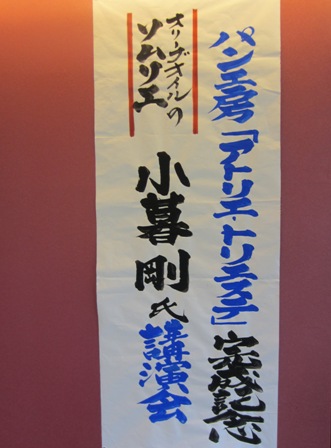 パン工房「アトリエ・トリエステ」完成記念
オリーブオイルの
ソムリエ
小暮剛氏講演会